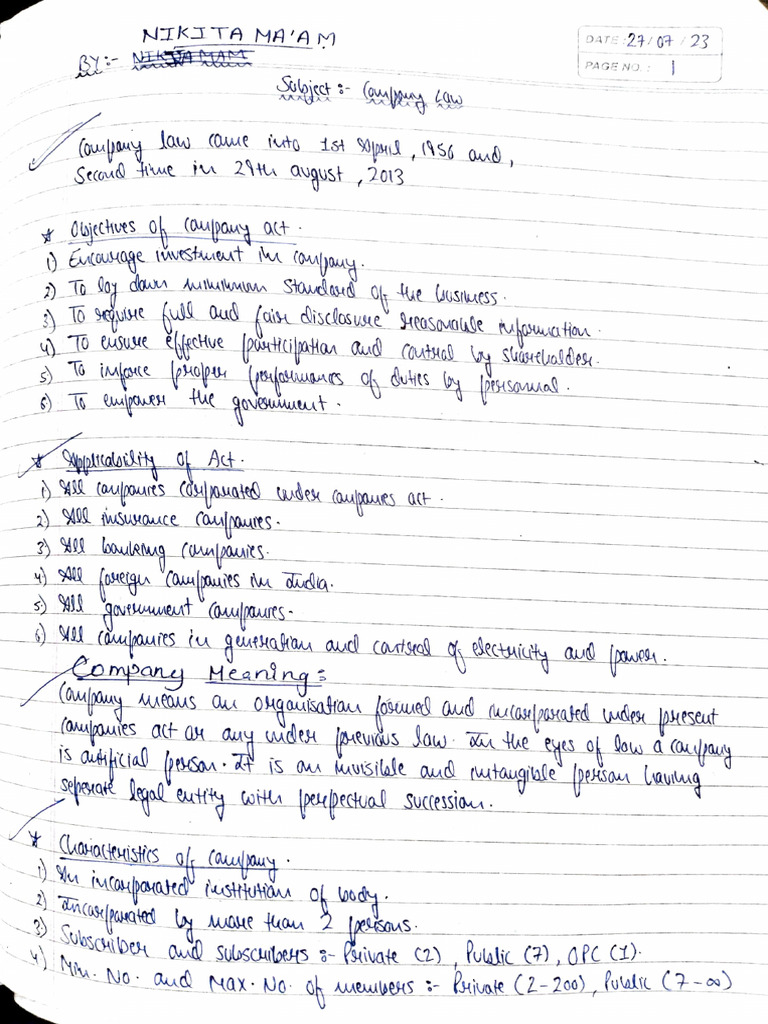 NIKITA MA'AM
DATE: 27/07/23
BY:- NIKITA MAM
PAGE NO.: 1
Subject :- Company Law
Company law came into 1st April, 1956 and,
Second time in 29th august, 2013
* Objectives of company act.
1) Encourage investment in company.
2) To lay down minimum standard of the business.
3) To require full and fair disclosure reasonable information.
4) To ensure effective participation and control by shareholder.
5) To inforce proper performances of duties by personnal.
6) To empower the government.
* Applicability of Act.
1) All companies corporated under companies act.
2) All insurance companies.
3) All banking companies.
4) All foreign companies in India.
5) All government companies.
6) All companies in generation and control of electricity and power.
Company Meaning:
Company means an organisation formed and incorporated under present
companies act or any under previous law. In the eyes of law a company
is artificial person. It is an invisible and intangible person having
seperate legal entity with perpectual succession.
* Characteristics of company.
1) An incorporated institution of body.
2) Incorporated by more than 2 persons.
3) Subscriber and subscribers :- Private (2), Public (7), OPC (1).
4) Min. No. and Max. No. of members :- Private (2-200), Public (7-∞)